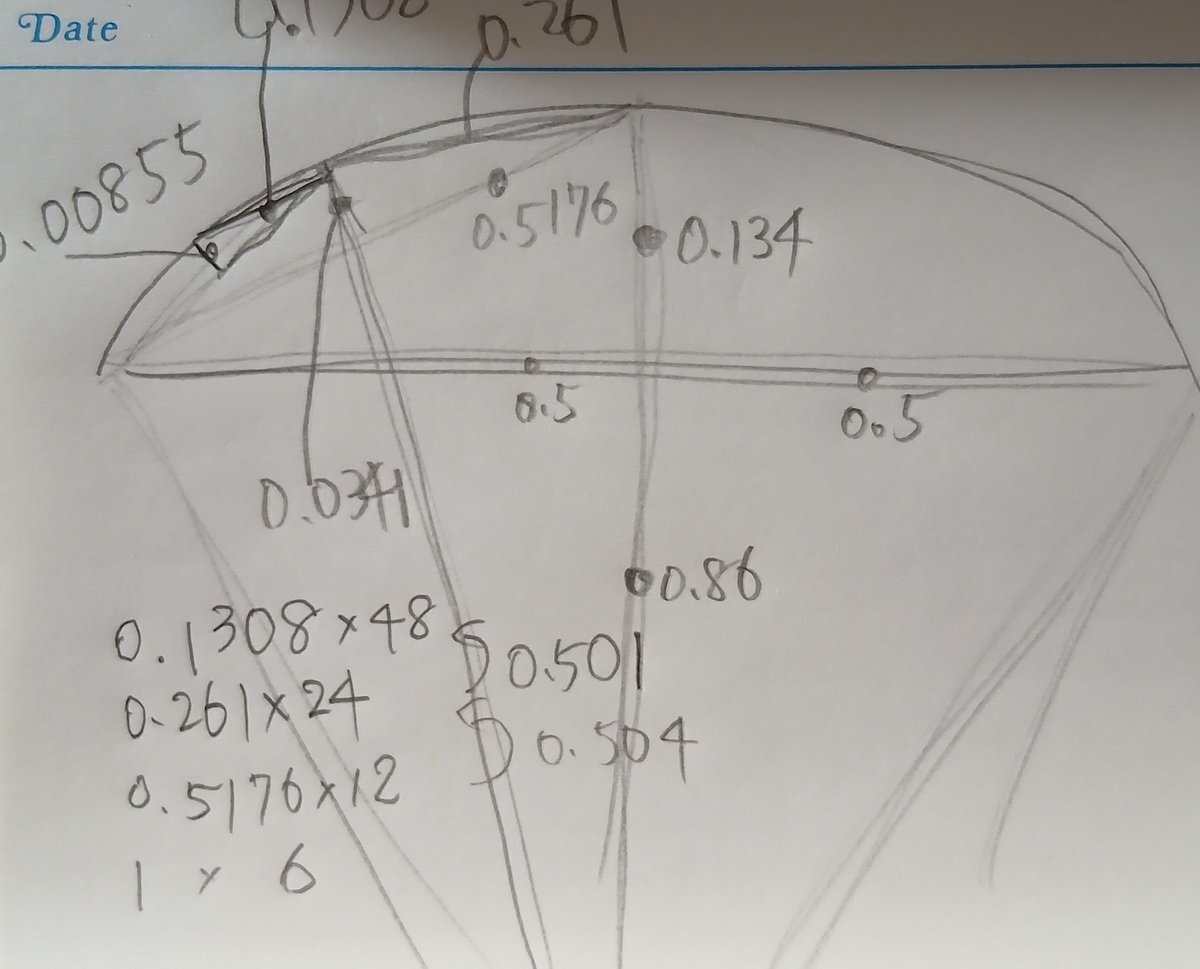 Date
0.261
.00855
0.5176
0.134
0.5
0.5
0.0341
0.86
0.1308×48
0.501
0.261×24
0.504
0.5176×12
1 × 6